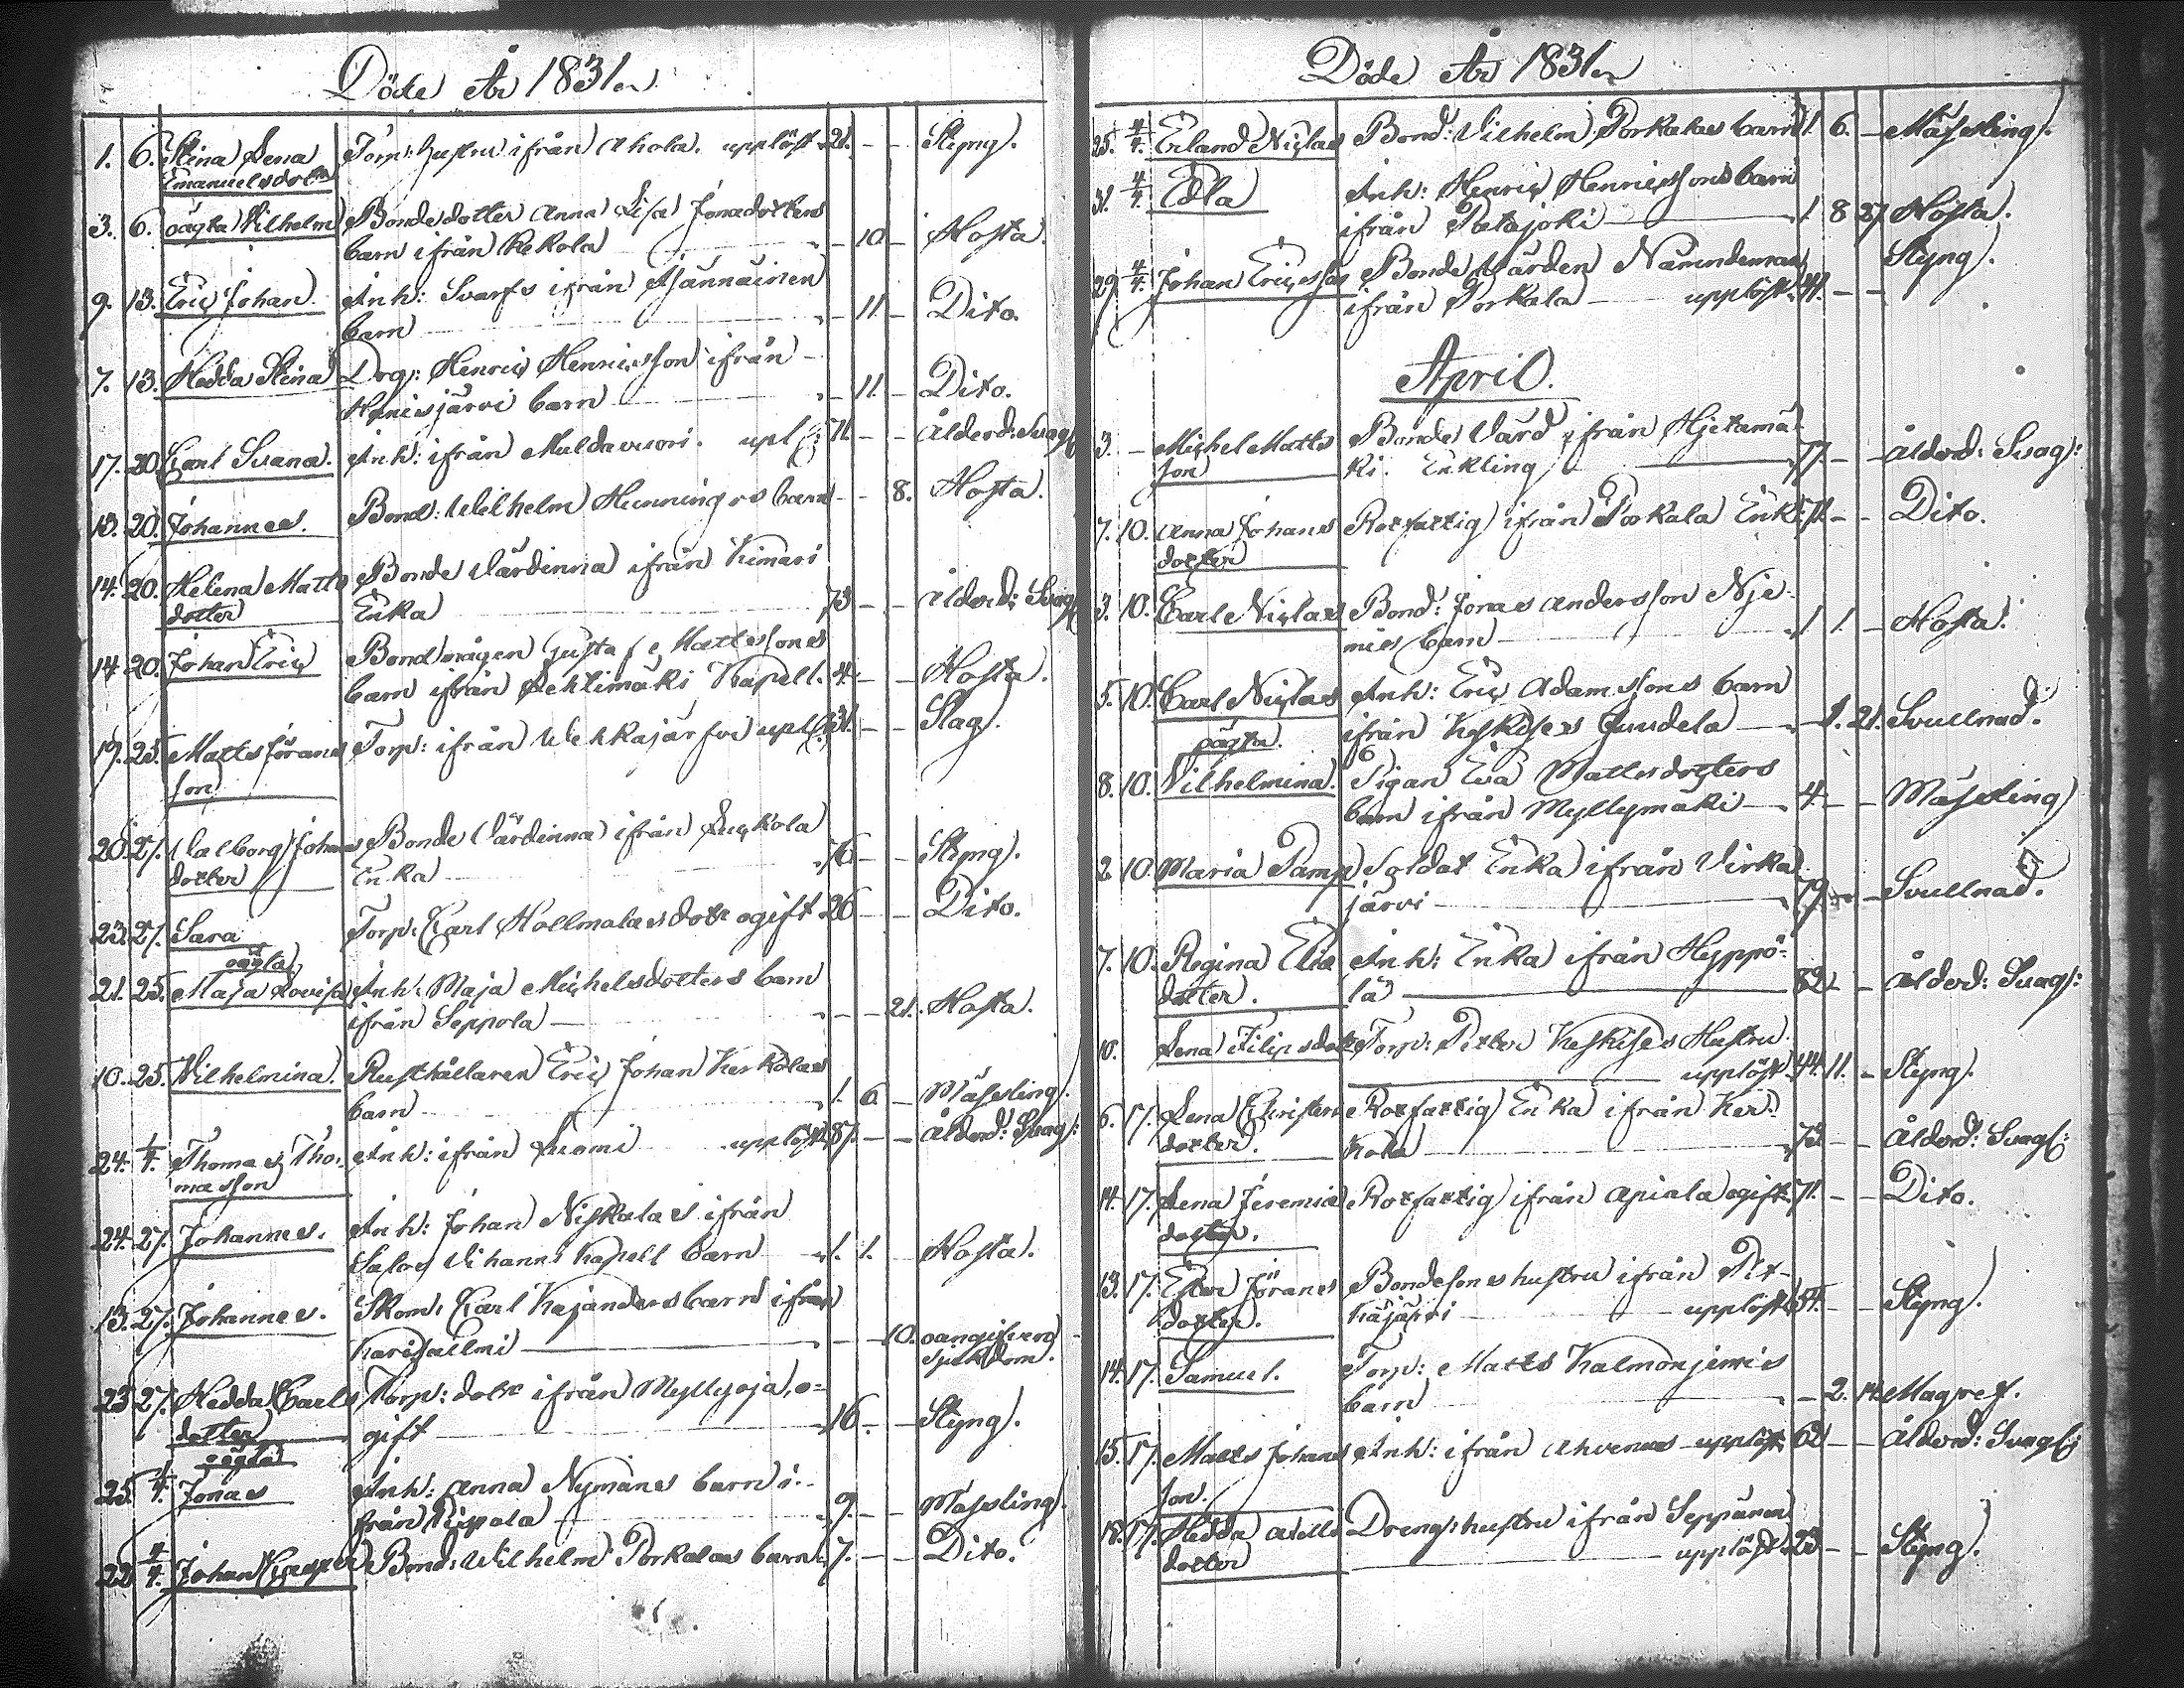 Döde År 1831
1. 6. Stina Lena Torp: hustru ifrån Ahola. upplöst 21. - - Styng.
Emanuelsdottr
3. 6. oägta Vilhelm Bondedotter Anna Lisa Jonædotters
barn ifrån Kekola - 10 - Hosta.
9. 13. Eric Johan. Inh: Svarfs ifrån
barn - 11 - Dito.
7. 13. Hedda Stina Drg: Henric Henricsson ifrån
barn - 11 - Dito.
17. 20. Carl Svana. Inh: ifrån Muldavuori. upl 71 - - Ålderd: Svag
13. 20. Johannes. Bond: Wilhelm barn - - 8. Hosta.
14. 20. Helena Matts Bonde Värdinna ifrån Kimari
dotter Enka 73 - - Ålderd: Svag
14 20. Johan Eric Bondmågen Gustaf Mattssons
barn ifrån Lehtimäki Kapell. 4. - - Hosta.
19. 25. Matts Jörans Torp: ifrån upl 31. - - Slag.
son
20. 27. Valborg Johans Bonde Värdinna ifrån
dotter Enka 76 - - Styng.
23. 27. Sara Torp: Carl Hallmalas dotr ogift 26 - - Dito.
oägta
21. 25. Maja Lovisa Inh: Maja Michelsdotters barn
ifrån Seppola - - 21. Hosta.
10. 25. Wilhelmina. Rusthållaren Eric Johan Kerkolas
barn 1. 6 - Mässling.
24. 4/4. Thomas Tho- Inh: ifrån Luomi upplöst 87. - - Ålderd: Svag:
masson
24. 27. Johannes. Inh: Johan Niskalas ifrån
Salo Vihanns Kapell barn 1. 1. Hosta.
13. 27. Johannes. Skom: Carl Kajanders barn ifrån
Karisalmi - - 10. oangifven
sjukdom.
23 27. Hedda Carls Torp: dotr ifrån Myllyoja, o-
dotter gift 16 - - Styng.
oägta
25. 4/4. Jonas Inh: Anna Nymans barn i-
från Piipola 9. - - Mässling.
22 4/4. Johan Casper Bond: Wilhelm Porkalas barn 7. - - Dito.
Döde År 1831
25. 4/4. Erland Niclas Bond: Vilhelm Porkalas barn 1. 6. - Mässling.
31. 4/4. Edla Inh: Henric Henricssons barn
ifrån Patajoki 1. 8 27 Hosta.
29 4/4. Johan Ericsson Bonde Värden Nämndeman Styng.
ifrån Porkala upplöst 41. - -
April.
3. - Michel Matts Bonde Värd ifrån Hjetamä-
son ki. Enkling 77. - - Ålderd: Svag:
7. 10. Anna Johans Rotfattig ifrån Porkala Enk: 71. - - Dito.
dotter
3. 10. Carl Niclas Bond: Jonas Andersson Nje-
mies barn 1 1. - Hosta.
5. 10. Carl Niclas Inh: Eric Adamssons barn
ifrån Keskises Juudela - 1. 21. Svullnad.
oägta.
8. 10. Vilhelmina. Pigan Eva Mattsdotters
barn ifrån Myllymäki 4. - - Mässling
2 10. Maria Pamp Soldat Enka ifrån Virka
järvi 79. - - Svullnad.
7. 10. Regina Elia Inh: Enka ifrån Heppo-
dotter. la 82 - - Ålderd: Svag:
10. Lena Filipsdotr Torp: Petter Keskises Hustru
upplöst 44. 11. - Styng.
6. 17. Lena Christers Rotfattig Enka ifrån Ker-
dotter. kola 73 - - Ålderd: Svag:
14. 17. Lena Jeremia Rotfattig ifrån Apiala ogift. 71. - - Dito.
dotter.
13. 17. Ester Jörans Bondesons hustru ifrån Pit-
dotter. käjärvi upplöst 54. - - Styng.
14. 17. Samuel. Torp: Matts Kalmonjemis
barn - 2. 14. Magref.
15. 17. Matts Johans Inh: ifrån Ahvenus upplöst 62 - - Ålderd: Svag:
son.
18. 17. Hedda Drengs: hustru ifrån Seppänen
dotter upplöst 23 - - Styng.